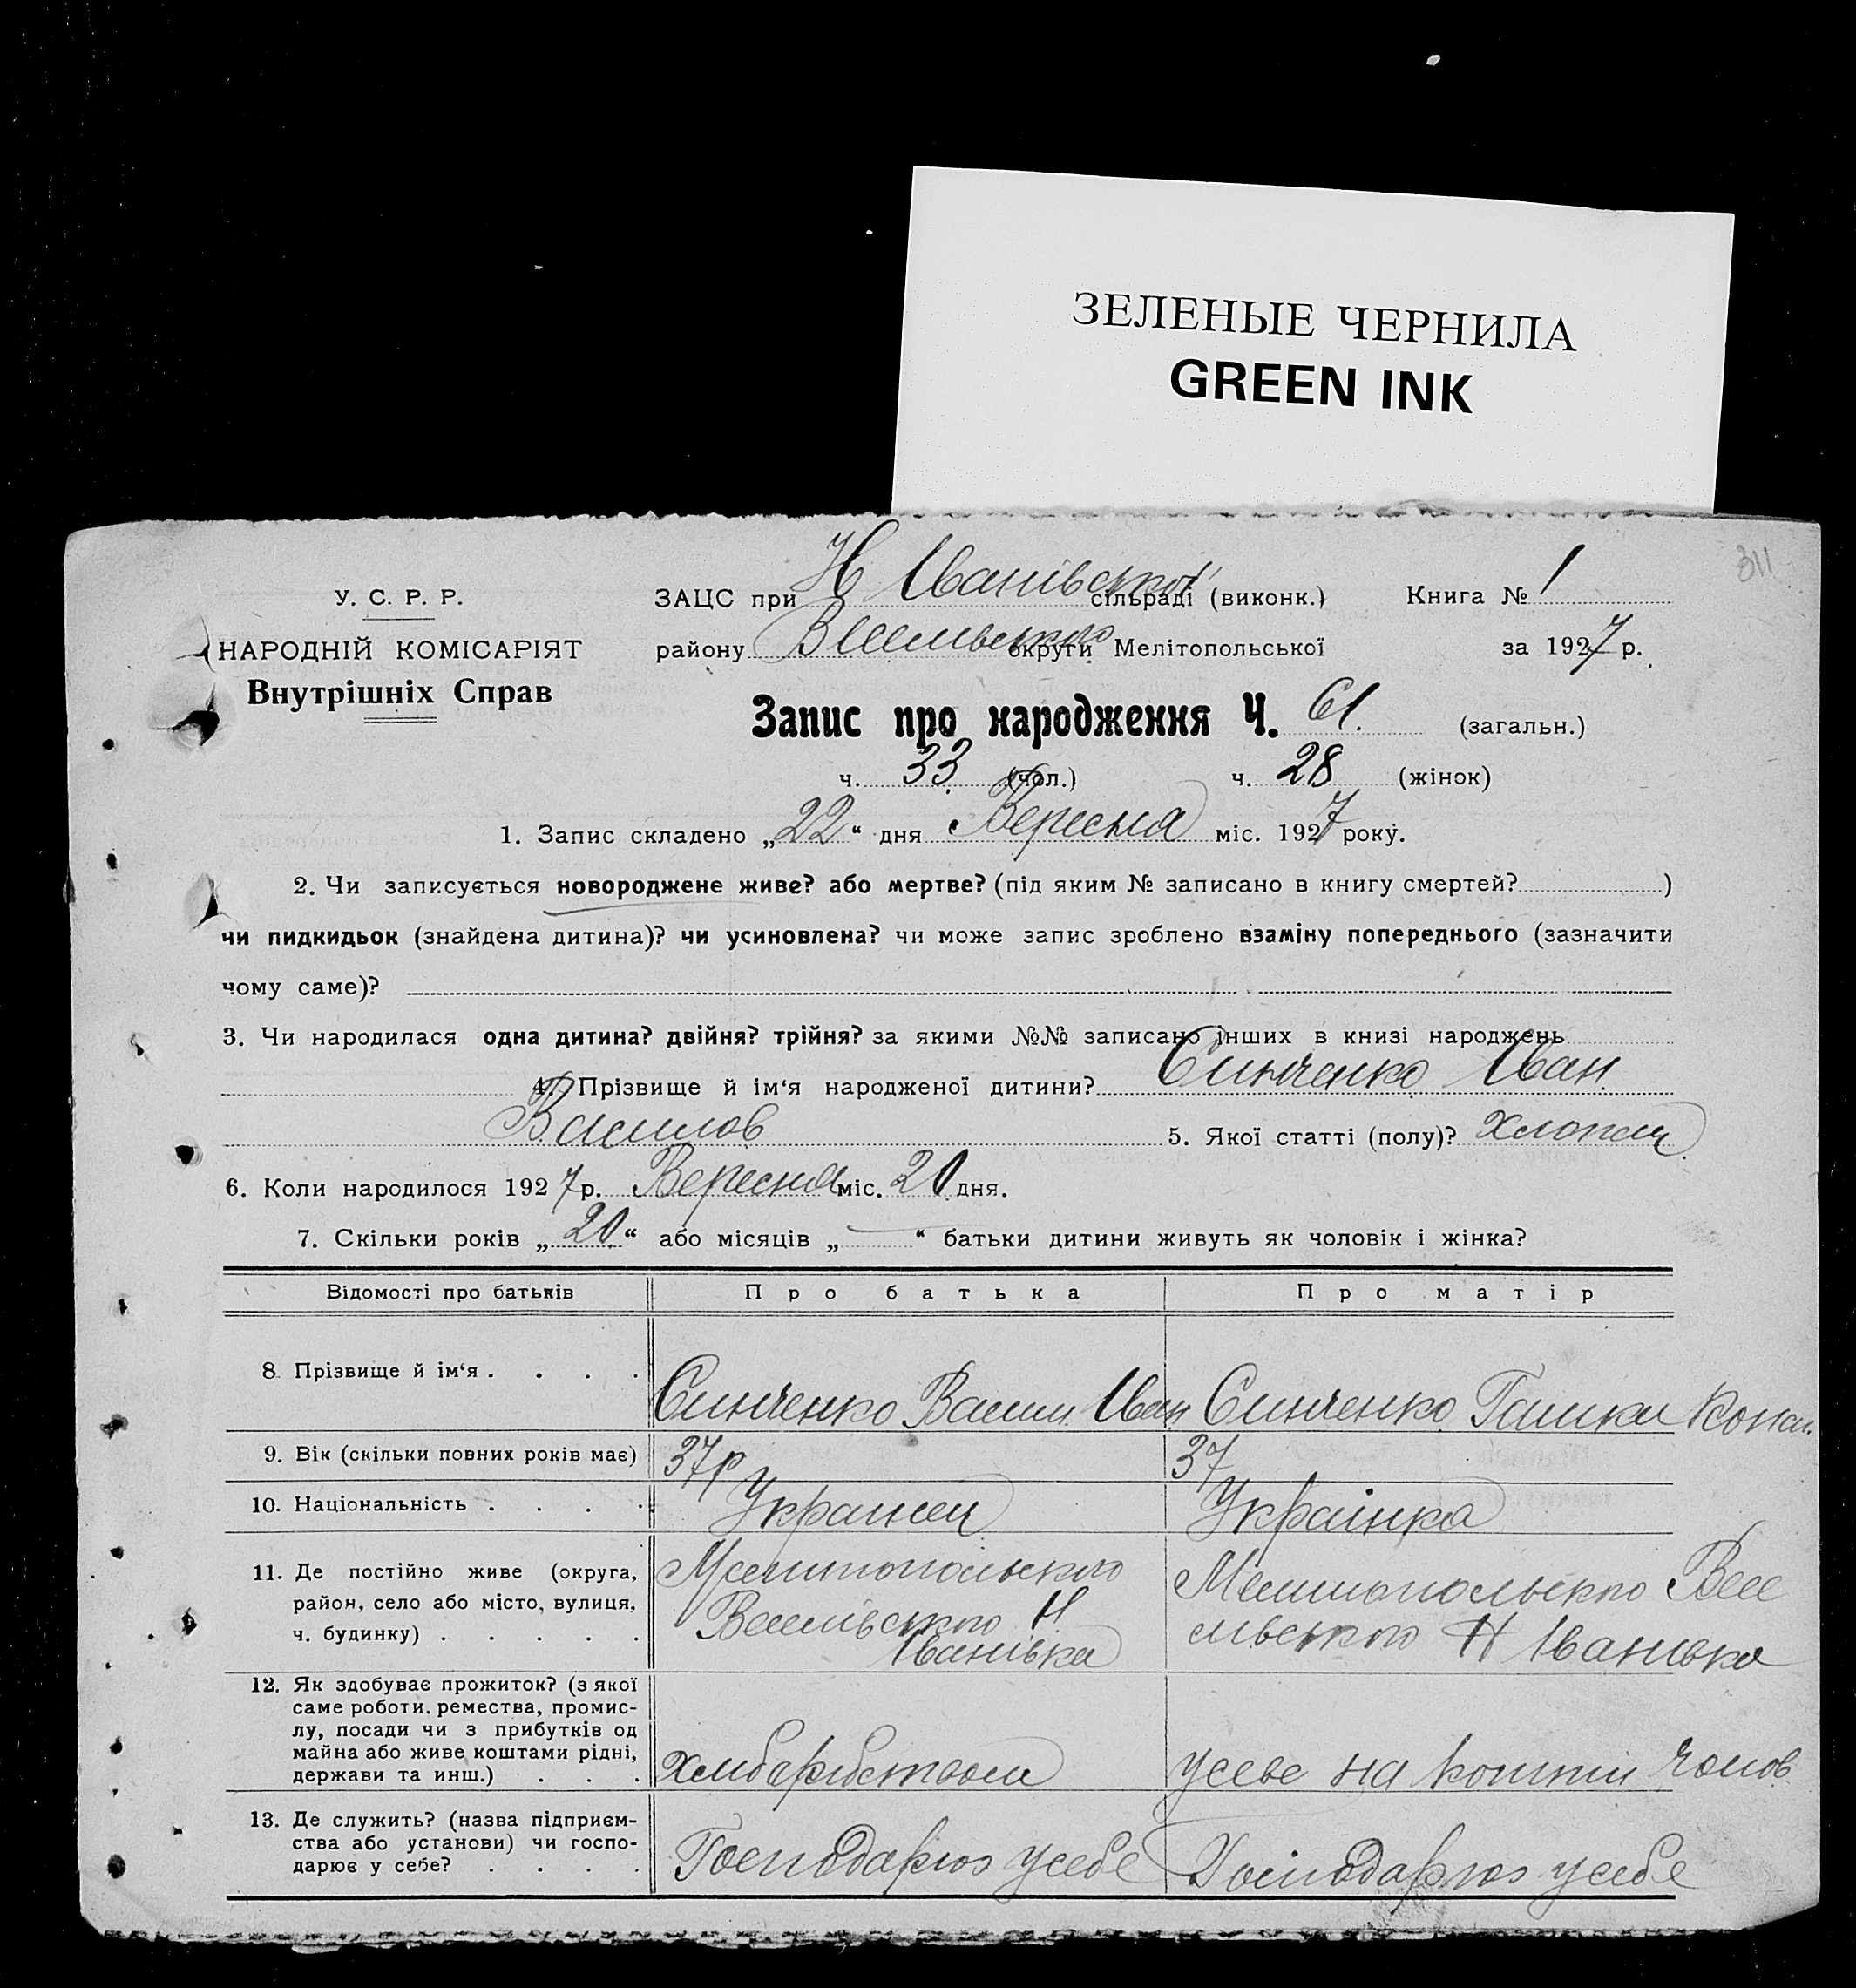 ЗЕЛЕНЫЕ ЧЕРНИЛА
GREEN INK
311
У. С. Р. Р.
НАРОДНІЙ КОМІСАРІЯТ
Внутрішніх Справ
ЗАЦС при Н Іванівської сільраді (виконк.) Книга № 1
району округи Мелітопольської за 1927 р.
Запис про народження Ч. 61. (загальн.)
ч. 33 (чол.) ч. 28 (жінок)
1. Запис складено „22“ дня Вересня міс. 1927 року.
2. Чи записується новороджене живе? або мертве? (під яким № записано в книгу смертей? )
чи пидкидьок (знайдена дитина)? чи усиновлена? чи може запис зроблено взаміну попереднього (зазначити
чому саме)?
3. Чи народилася одна дитина? двійня? трійня? за якими №№ записано інших в книзі народжень
4. Прізвище й ім‘я народженої дитини? Синченко Іван
Василов 5. Якої статті (полу)? хлопец
6. Коли народилося 1927 р. Вересня міс. 20 дня.
7. Скільки років „20“ або місяців „—“ батьки дитини живуть як чоловік і жінка?
Відомості про батьків Про батька Про матір
8. Прізвище й ім‘я . . . . Синченко Васил. Іван Синченко
9. Вік (скільки повних років має) 37р 37
10. Національність . . . . Украинец Українка
11. Де постійно живе (округа,
район, село або місто, вулиця,
ч. будинку) . . . . .
Мелитопольского
Веселівського Н
Іванівка
Мелитопольского Весе
лівського Н Іванівка
12. Як здобуває прожиток? (з якої
саме роботи, ремества, промис-
лу, посади чи з прибутків од
майна або живе коштами рідні,
держави та инш.) . . .
на кошти чолов
13. Де служить? (назва підприєм-
ства або установи) чи госпо-
дарює у себе? . . . .
Господарюэ усебе
Господарюэ усебе